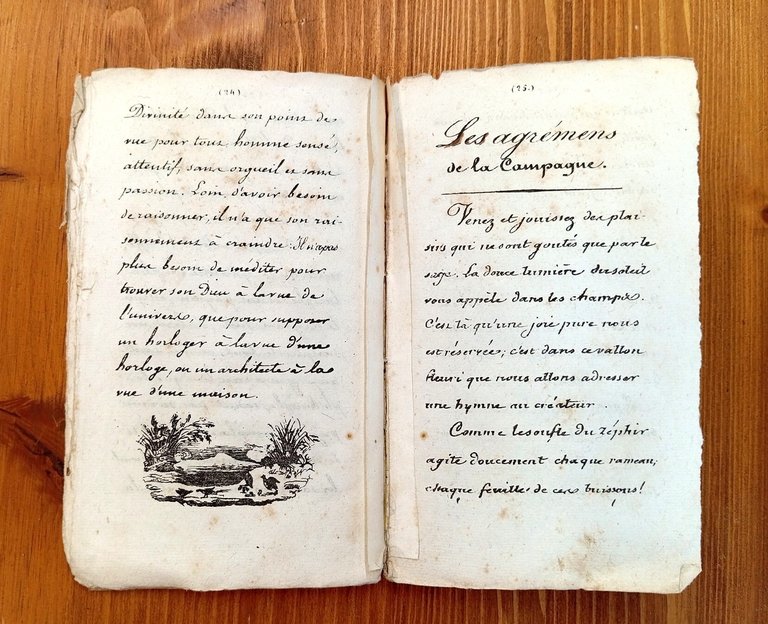 (24)
Divinité dans son point de
vue pour tout homme sensé,
attentif, sans orgueil et sans
passion. Loin d'avoir besoin
de raisonner, il n'a que son rai-
sonnement à craindre : Il n'a pas
plus besoin de méditer pour
trouver son Dieu à la vue de
l'univers, que pour supposer
un horloger à la vue d'une
horloge, ou un architecte à la
vue d'une maison.
(25.)
Les agrémens
de la Campagne.
Venez et jouissez des plai-
sirs qui ne sont goutés que par le
sage. La douce lumière du soleil
vous appèle dans les champs.
C'est là qu'une joie pure nous
est réservée; c'est dans ce vallon
fleuri que nous allons adresser
une hymne au créateur.
Comme le soufle du zéphir
agite doucement chaque rameau,
chaque feuille de ces buissons!